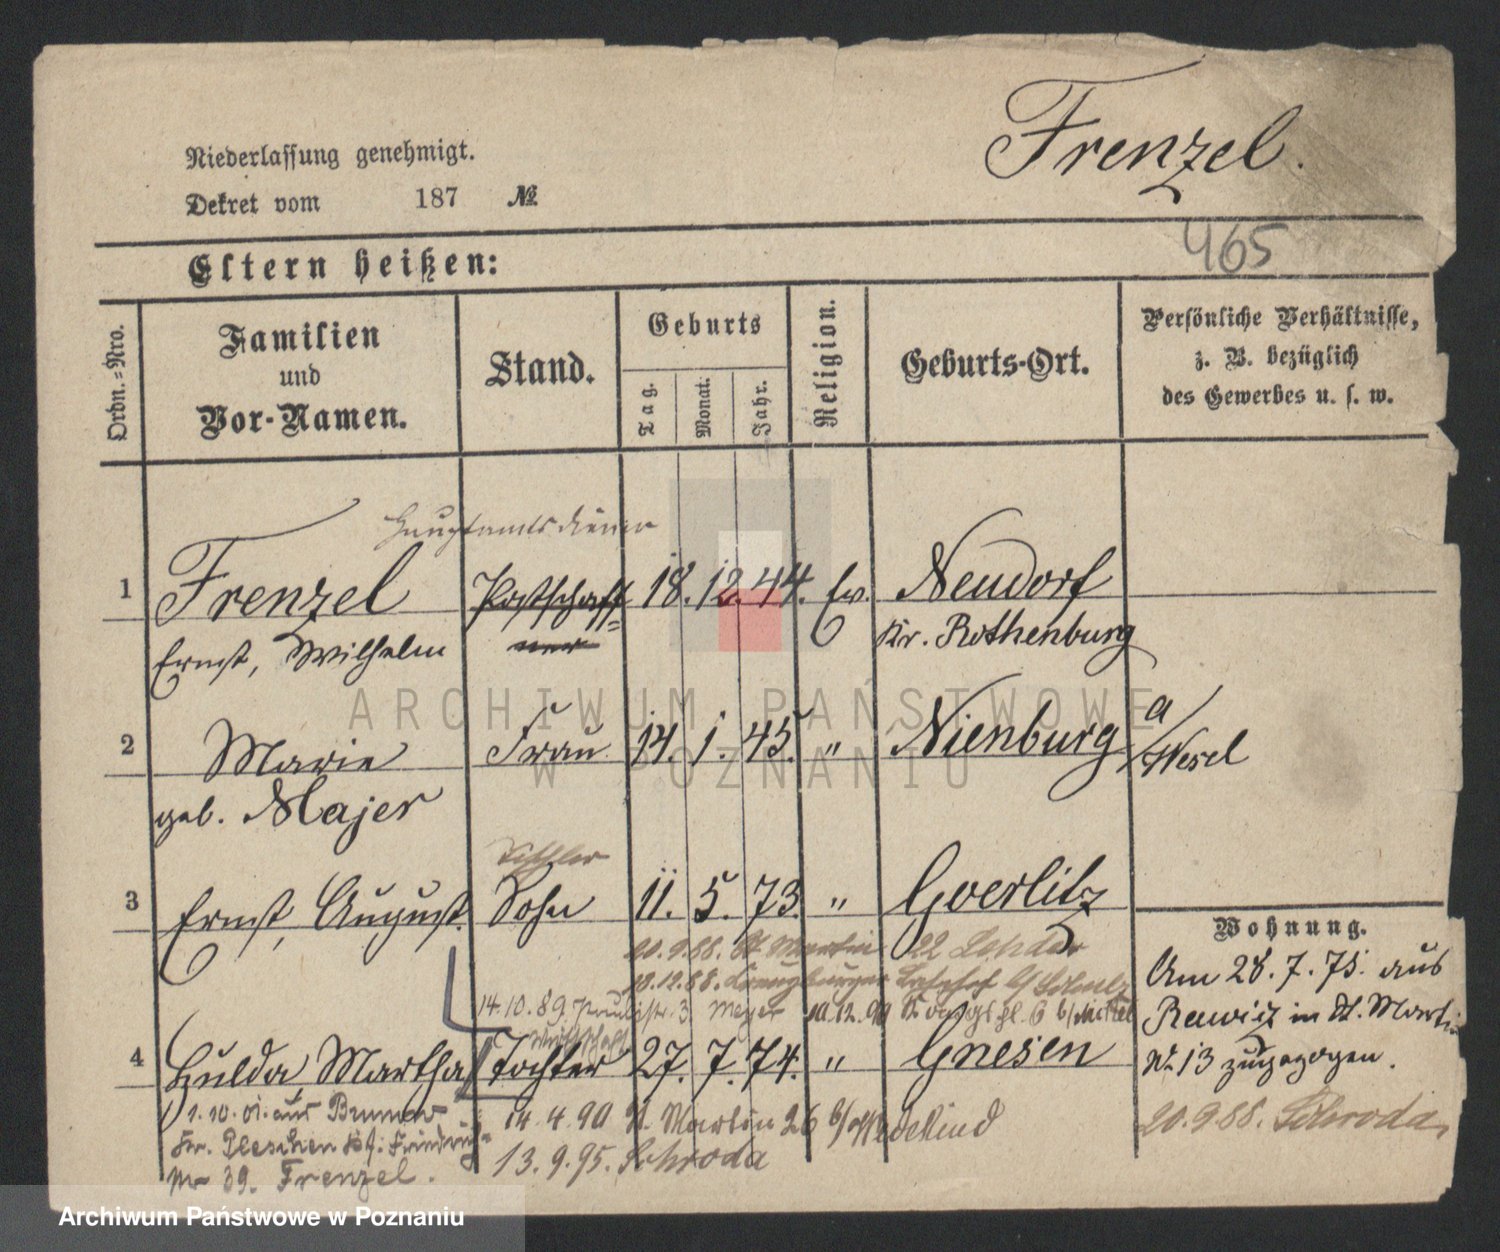 Frenzel.
Niederlassung genehmigt.
Dekret vom 187 №
465
Eltern heißen:
Ordn.-Nro.
Familien
und
Vor-Namen.
Stand.
Geburts
Tag.
Monat.
Jahr.
Religion.
Geburts-Ort.
Persönliche Verhältnisse,
z. B. bezüglich
des Gewerbes u. s. w.
Hauptamtsdiener
1 Frenzel Postschaff= 18. 12. 44. Ev. Neudorf
Ernst, Wilhelm ner Kr. Rothenburg
ARCHIWUM PAŃSTWOWE
W POZNANIU
2 Marie Frau 14. 1. 45. " Nienburg a/Wesel
geb. Majer
3 Ernst, August. Sohn 11. 5. 73. " Goerlitz
Wohnung.
20.9.88. St. Martin 22
18.12.88.
14.10.89. 3 Meyer
Am 28.7.75. aus
Rawicz in St. Martin
№ 13 zugezogen.
4 Hulda, Martha Tochter 27. 7. 74. " Gnesen
1.10.01. aus
Kr. Pleschen
№ 39. Frenzel.
14.4.90 St. Martin 26 b/Wedekind
13.9.95. Schroda
20.9.88. Schroda,
Archiwum Państwowe w Poznaniu